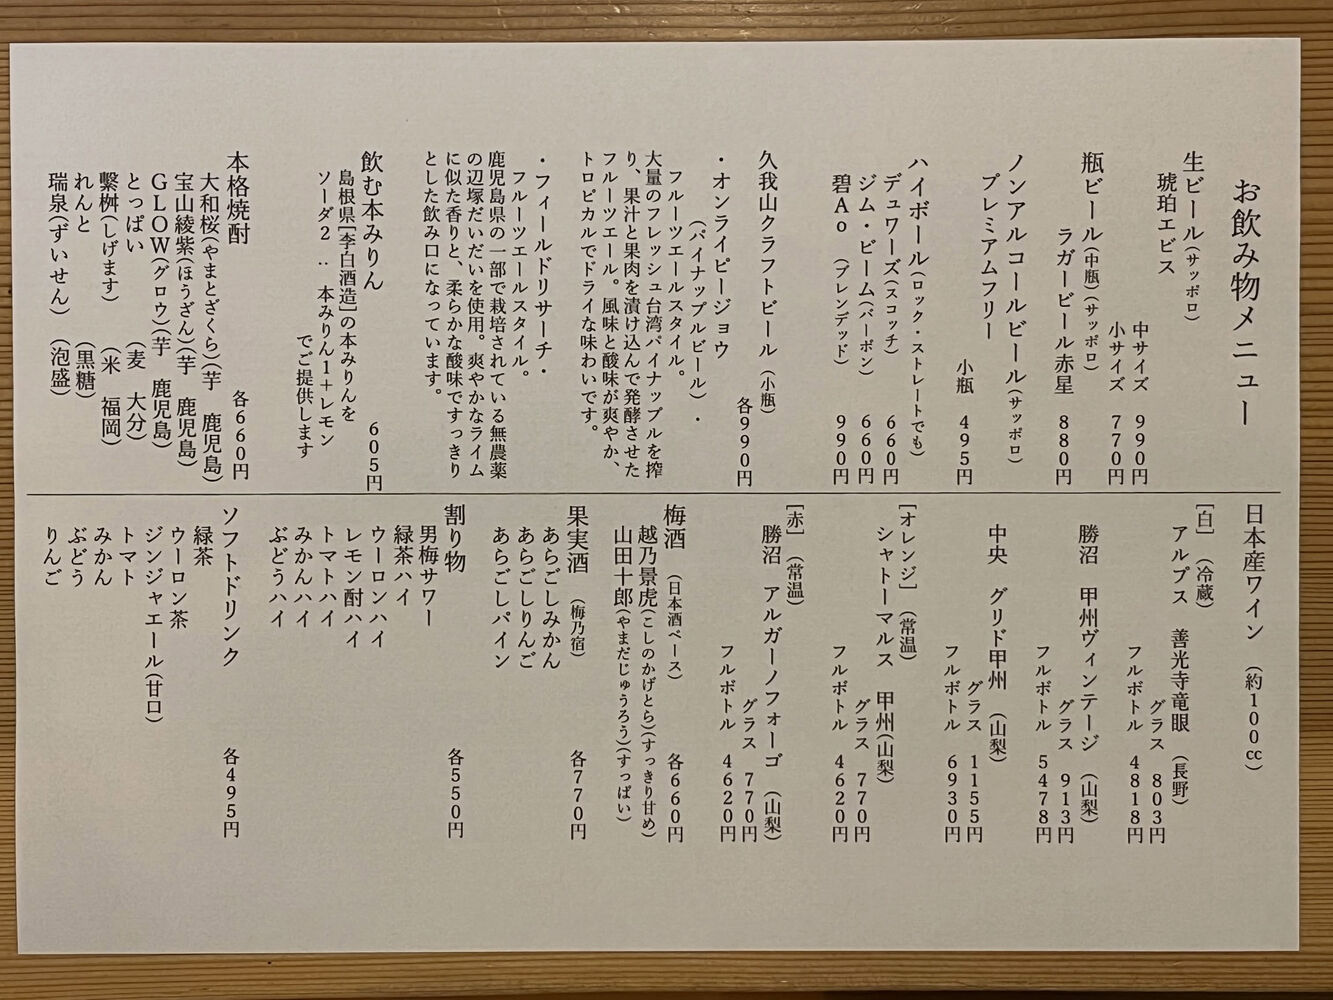 お飲み物メニュー
生ビール(サッポロ)
琥珀エビス
中サイズ 990円
小サイズ 770円
瓶ビール(中瓶)(サッポロ)
ラガービール赤星 880円
ノンアルコールビール(サッポロ)
プレミアムフリー
小瓶 495円
ハイボール(ロック・ストレートでも)
デュワーズ(スコッチ) 660円
ジム・ビーム(バーボン) 660円
碧Ao (ブレンデッド) 990円
久我山クラフトビール(小瓶)
各990円
・オンライピージョウ
(パイナップルビール)・
フルーツエールスタイル。
大量のフレッシュ台湾パイナップルを搾
り、果汁と果肉を漬け込んで発酵させた
フルーツエール。風味と酸味が爽やか、
トロピカルでドライな味わいです。
・フィールドリサーチ・
フルーツエールスタイル。
鹿児島県の一部で栽培されている無農薬
の辺塚だいだいを使用。爽やかなライム
に似た香りと、柔らかな酸味ですっきり
とした飲み口になっています。
飲む本みりん 605円
島根県[李白酒造]の本みりんを
ソーダ2：本みりん1+レモン
でご提供します
本格焼酎 各660円
大和桜(やまとざくら)(芋 鹿児島)
宝山綾紫(ほうざん)(芋 鹿児島)
GLOW(グロウ)(芋 鹿児島)
とっぱい (麦 大分)
繫桝(しげます) (米 福岡)
れんと (黒糖)
瑞泉(ずいせん) (泡盛)
日本産ワイン (約100cc)
[白] (冷蔵)
アルプス 善光寺竜眼 (長野)
グラス 803円
フルボトル 4818円
勝沼 甲州ヴィンテージ (山梨)
グラス 913円
フルボトル 5478円
中央 グリド甲州 (山梨)
グラス 1155円
フルボトル 6930円
[オレンジ] (常温)
シャトーマルス 甲州(山梨)
グラス 770円
フルボトル 4620円
[赤] (常温)
勝沼 アルガーノフォーゴ (山梨)
グラス 770円
フルボトル 4620円
梅酒 (日本酒ベース) 各660円
越乃景虎(こしのかげとら)(すっきり甘め)
山田十郎(やまだじゅうろう)(すっぱい)
果実酒 (梅乃宿) 各770円
あらごしみかん
あらごしりんご
あらごしパイン
割り物 各550円
男梅サワー
緑茶ハイ
ウーロンハイ
レモン酎ハイ
トマトハイ
みかんハイ
ぶどうハイ
ソフトドリンク 各495円
緑茶
ウーロン茶
ジンジャエール(甘口)
トマト
みかん
ぶどう
りんご